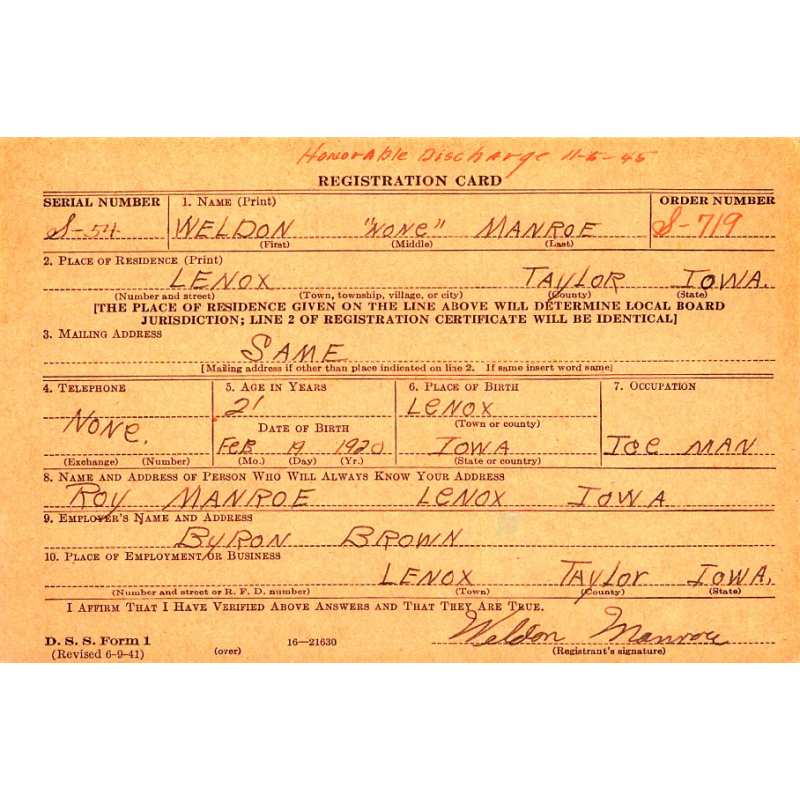 Honorable Discharge 11-5-45
REGISTRATION CARD
SERIAL NUMBER 1. NAME (Print) ORDER NUMBER
S-54 WELDON "NONE" MANROE S-719
(First) (Middle) (Last)
2. PLACE OF RESIDENCE (Print)
LENOX TAYLOR IOWA.
(Number and street) (Town, township, village, or city) (County) (State)
[THE PLACE OF RESIDENCE GIVEN ON THE LINE ABOVE WILL DETERMINE LOCAL BOARD
JURISDICTION; LINE 2 OF REGISTRATION CERTIFICATE WILL BE IDENTICAL]
3. MAILING ADDRESS
SAME
[Mailing address if other than place indicated on line 2. If same insert word same]
4. TELEPHONE 5. AGE IN YEARS 6. PLACE OF BIRTH 7. OCCUPATION
21 LENOX
(Town or county)
NONE. DATE OF BIRTH
FEB 19 1920 IOWA ICE MAN
(Exchange) (Number) (Mo.) (Day) (Yr.) (State or country)
8. NAME AND ADDRESS OF PERSON WHO WILL ALWAYS KNOW YOUR ADDRESS
ROY MANROE LENOX IOWA
9. EMPLOYER'S NAME AND ADDRESS
BYRON BROWN
10. PLACE OF EMPLOYMENT OR BUSINESS
LENOX TAYLOR IOWA.
(Number and street or R. F. D. number) (Town) (County) (State)
I AFFIRM THAT I HAVE VERIFIED ABOVE ANSWERS AND THAT THEY ARE TRUE.
Weldon Manroe
D. S. S. Form 1 16—21630
(Revised 6-9-41) (over) (Registrant's signature)